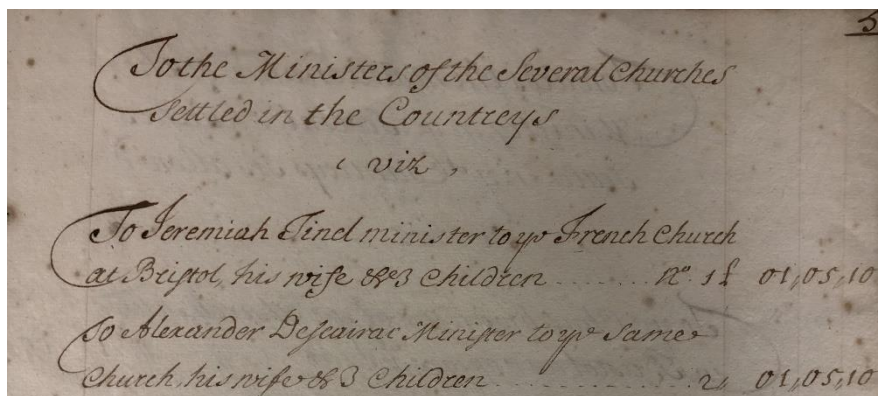 5
To the Ministers of the Several Churches
Settled in the Countreys
viz
To Jeremiah Tinel minister to ye French Church
at Bristol, his wife & 3 Children ........ no. 1 £ 01,,05,,10
To Alexander Descairac Minister to ye Same
Church, his wife & 3 Children .............. 2,, 01,,05,,10